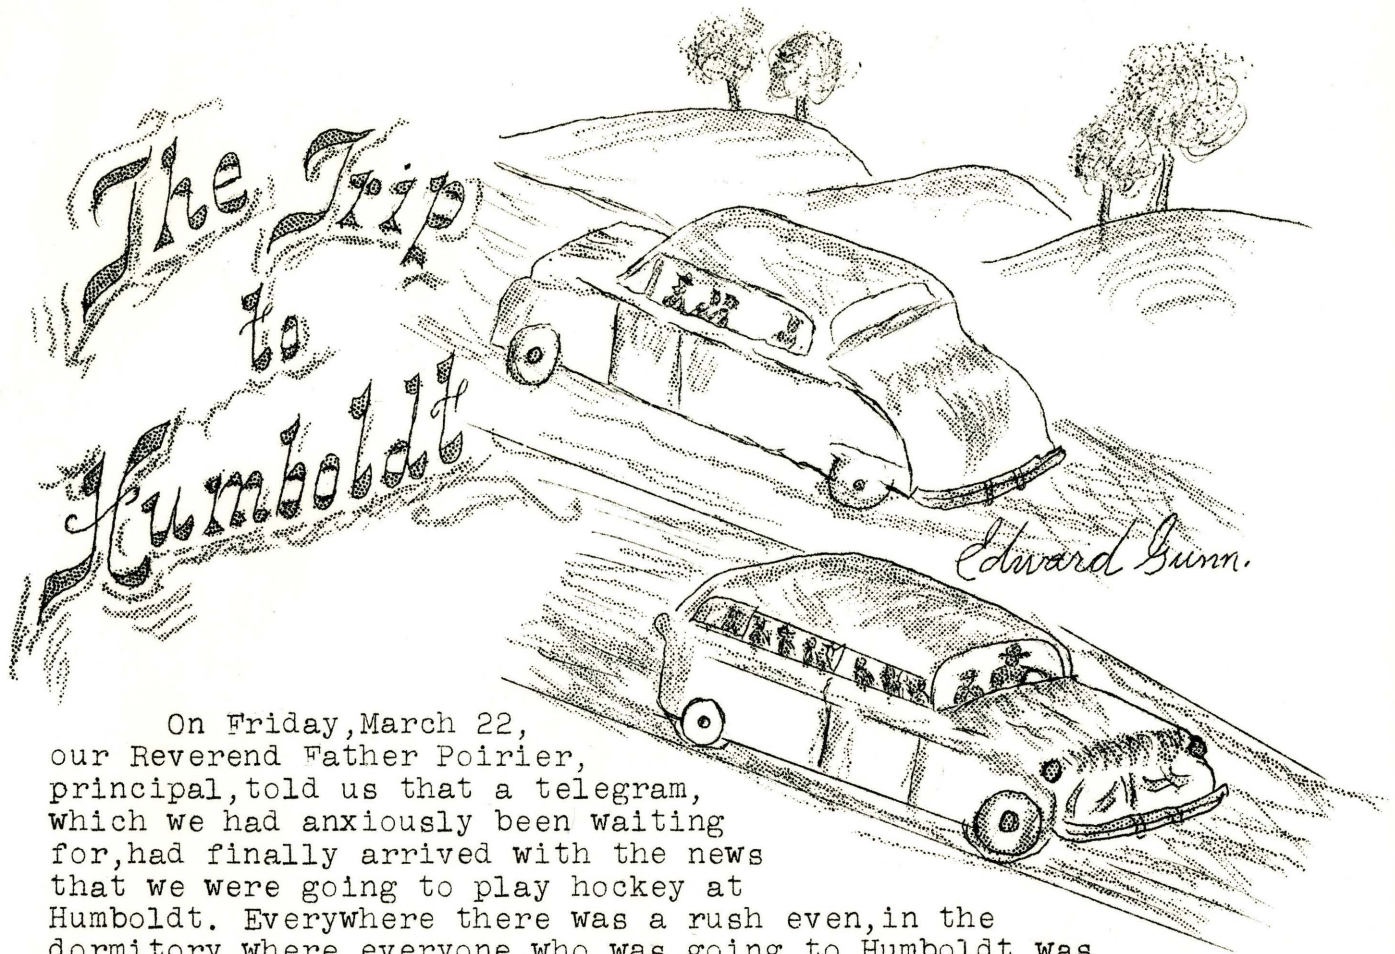 The Trip
to
Humboldt
Edward Gunn.
On Friday,March 22,
our Reverend Father Poirier,
principal,told us that a telegram,
which we had anxiously been waiting
for,had finally arrived with the news
that we were going to play hockey at
Humboldt. Everywhere there was a rush even,in the
dormitory where everyone who was going to Humboldt was